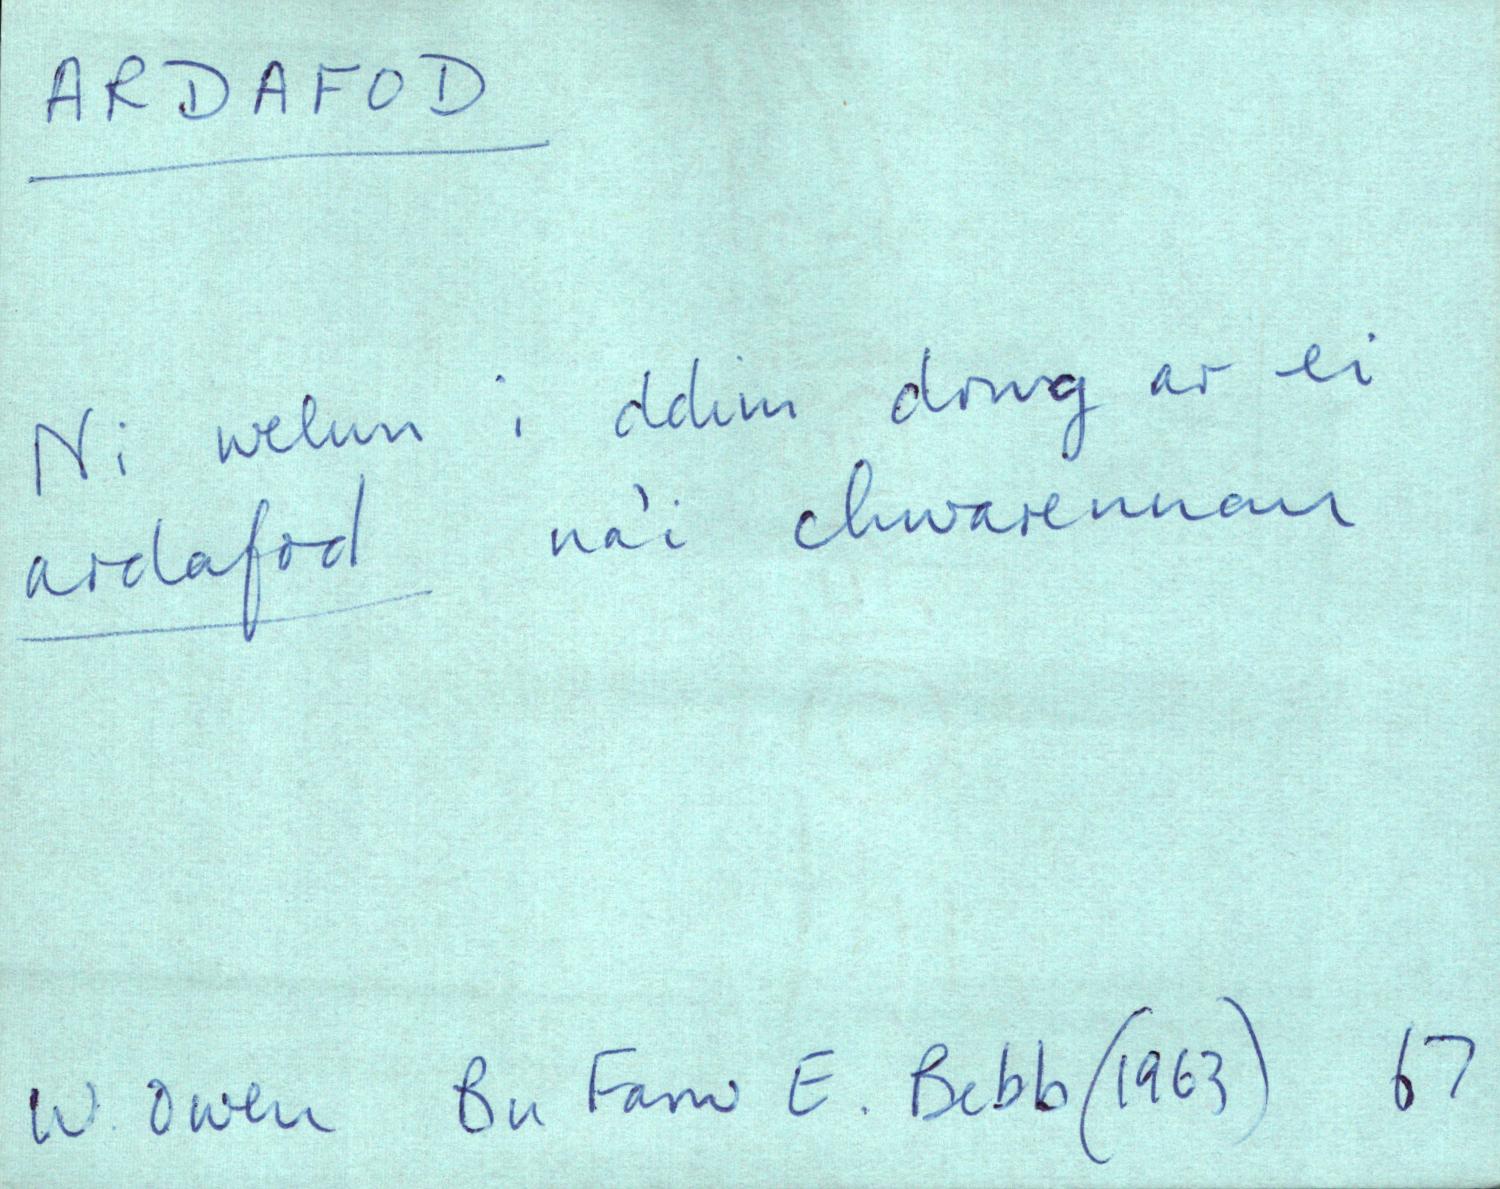 ARDAFOD
Ni welun i ddim drwg ar ei
ardafod na'i chwarennau
W. Owen Bu Farw E. Bebb (1963) 67